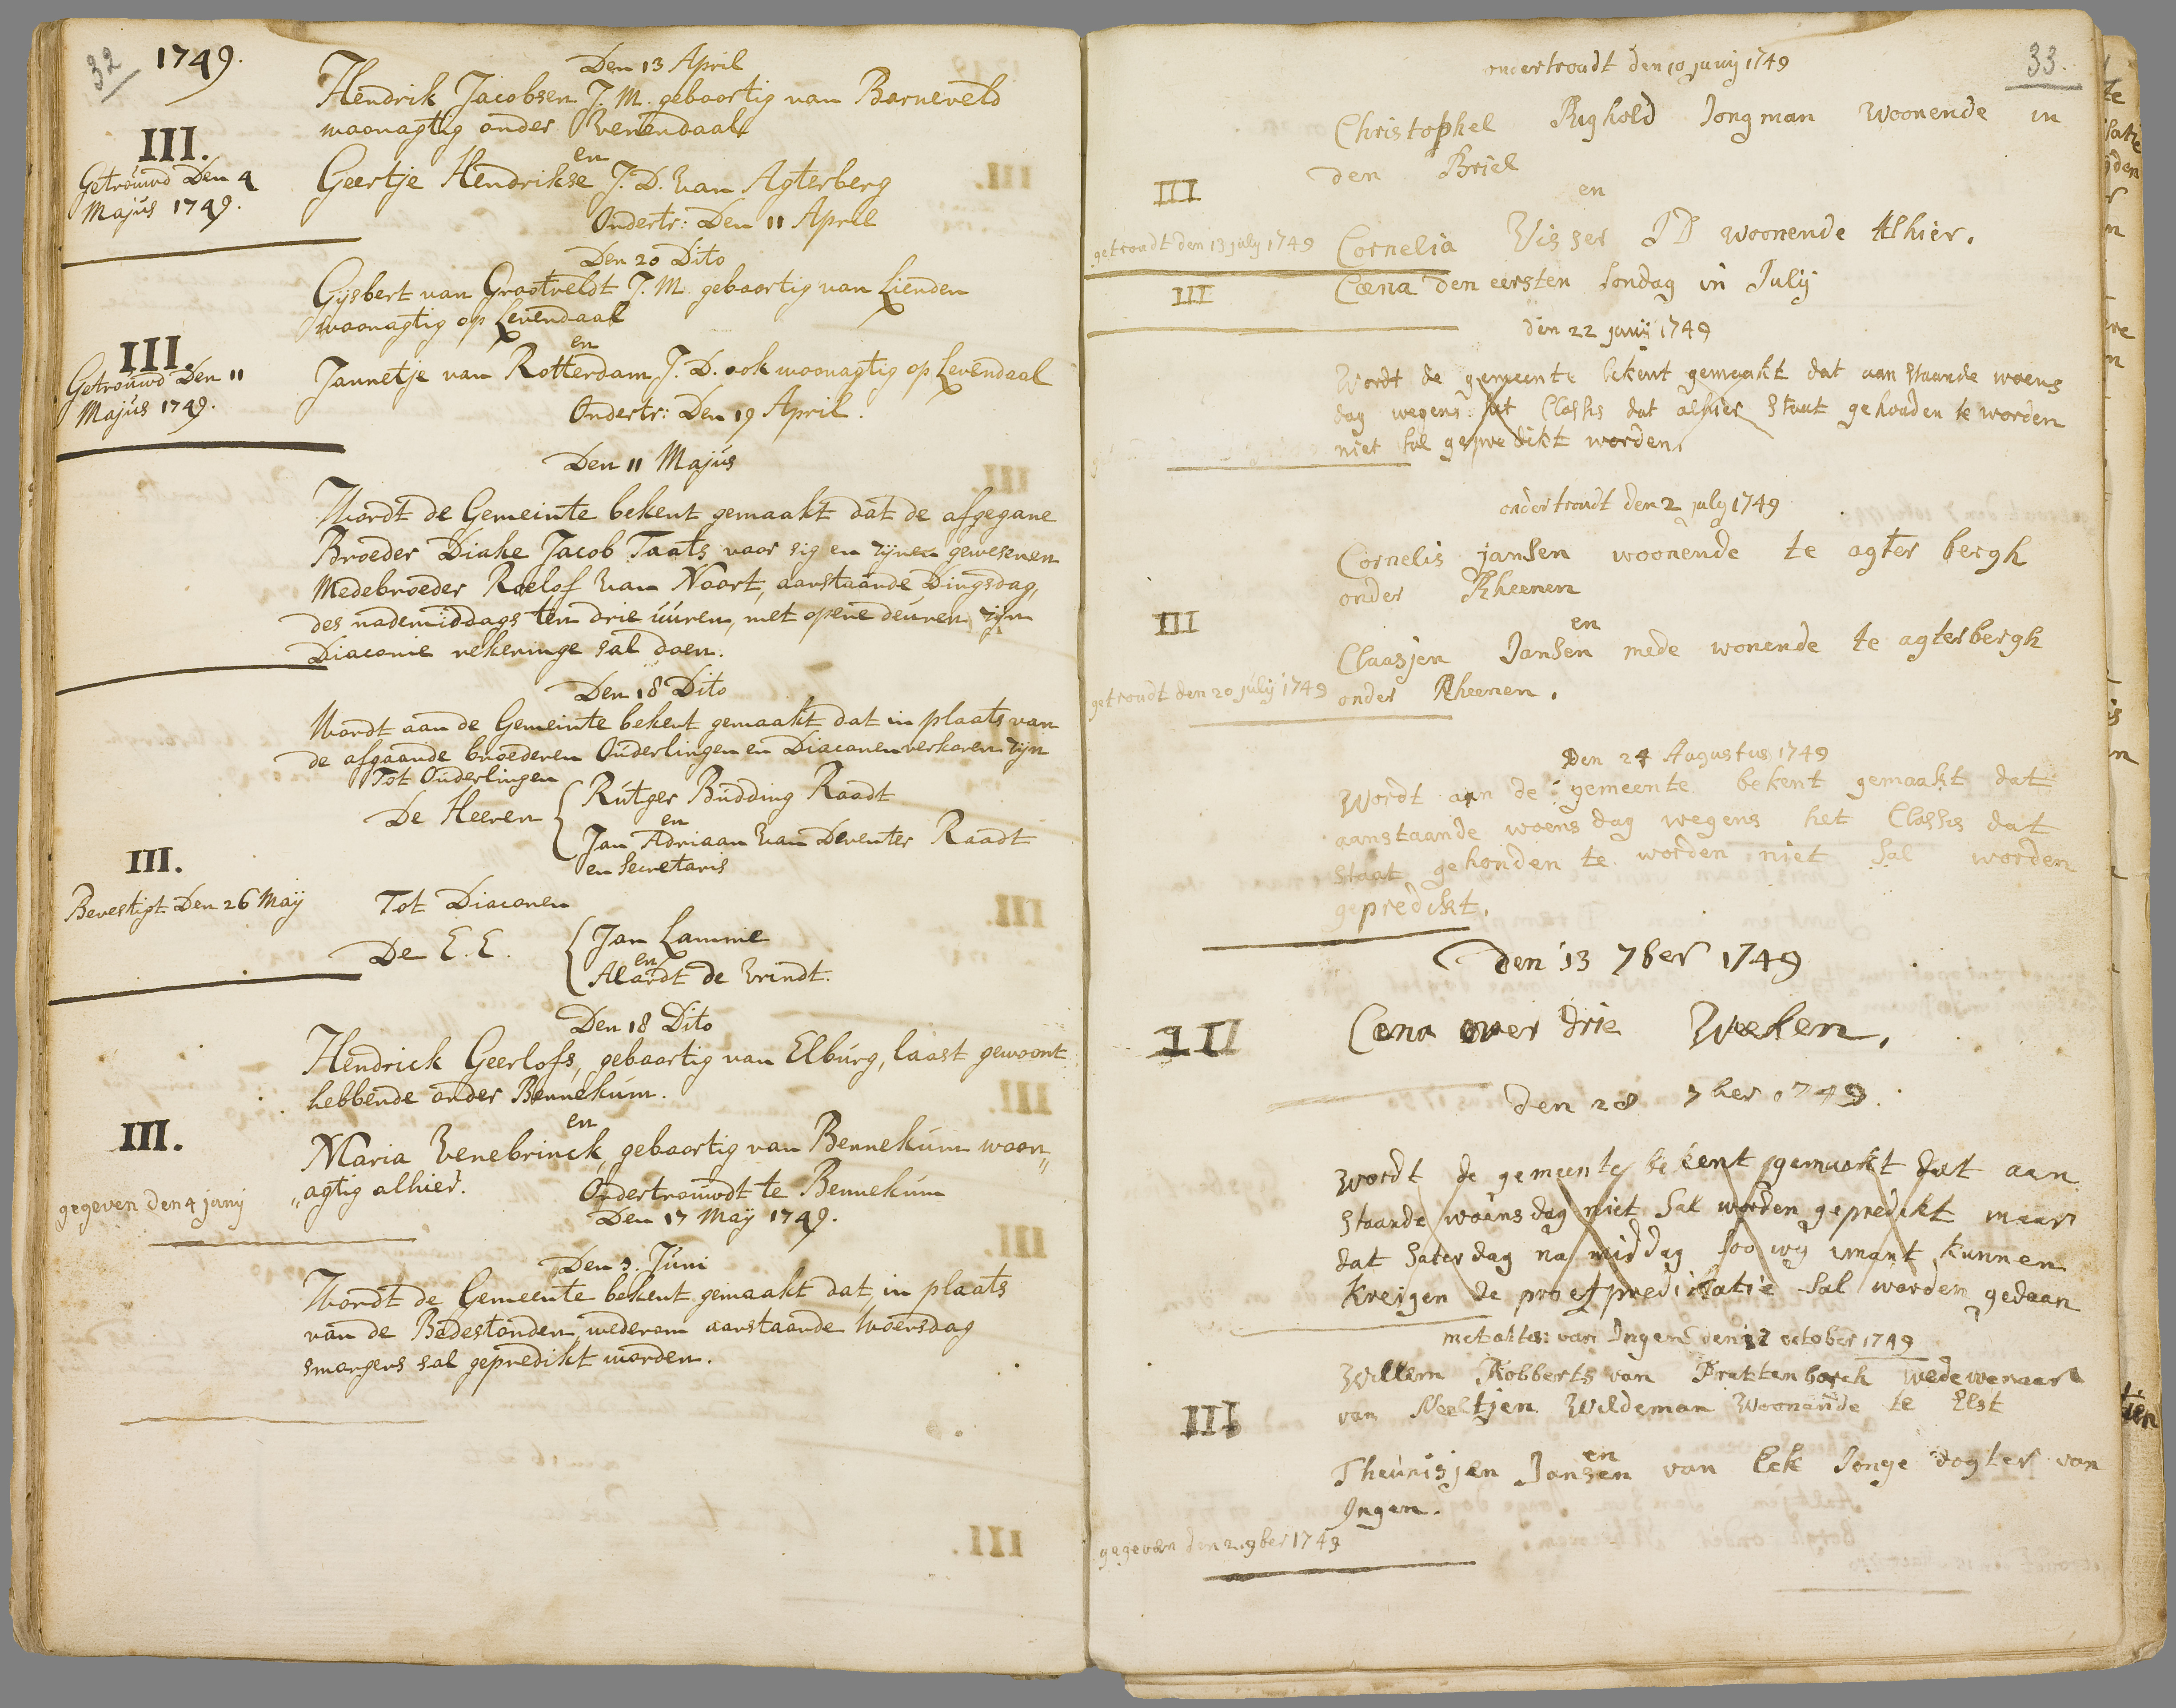 32 1749.
Den 13 April
Hendrik Jacobsen J. M. geboortig van Barneveld
woonagtig onder Venendaal
III.
Getrouwd Den 4
Majus 1749.
en
Geertje Hendrikse J. D. van Agterberg
Ondertr: Den 11 April
Den 20 Dito
Gijsbert van Grootveldt J. M. geboortig van Lienden
woonagtig op Levendaal
III.
Getrouwd Den 11
Majus 1749.
en
Jannetje van Rotterdam J. D. ook woonagtig op Levendaal
Ondertr: Den 19 April.
Den 11 Majus
Wordt de Gemeinte bekent gemaakt dat de afgegane
Broeder Diake Jacob Taats voor sig en zijnen gewesenen
Medebroeder Roelof van Noort, aanstaande Dingsdag,
des nademiddags ten drie uuren, met opene deuren zijn
Diaconie rekeninge sal doen.
Den 18 Dito
Wordt aan de Gemeinte bekent gemaakt dat in plaats van
de afgaande broederen Ouderlingen en Diaconen verkoren zijn
Tot Ouderlingen
De Heeren
Rutger Budding Raadt
en
Jan Adriaan van Deventer Raadt
en Secretaris
III.
Bevestigt Den 26 Maij
Tot Diaconen
De E. E.
Jan Lamme
en
Alardt de Vrindt.
Den 18 Dito
Hendrick Geerlofs, geboortig van Elburg, laast gewoont
hebbende onder Bennekum.
en
III.
Maria Venebrinck, geboortig van Bennekum woon„
„agtig alhier.
gegeven den 4 junij
Ondertrouwdt te Bennekum
Den 17 Maij 1749.
Den 3. Juni
Wordt de Gemeente bekent gemaakt dat, in plaats
van de Bedestonden, wederom aanstaande Woensdag
smorgens sal gepredikt worden.
33.
ondertroudt den 10 junij 1749
Christophel Righold Jongman woonende in
den Briel
III
en
getroudt den 13 july 1749
Cornelia Visser JD woonende Alhier.
III
Cæna den eersten Sondag in Julij
den 22 junij 1749
Wordt de gemeente bekent gemaakt dat aan staande woens
dag wegens het Classis dat alhier staat gehouden te worden
niet sal gepredikt worden.
ondertroudt den 2 july 1749
Cornelis jansen woonende te agter bergh
onder Rheenen
III
en
Claasjen Jansen mede wonende te agterbergh
getroudt den 20 julij 1749
onder Rheenen.
Den 24 Augustus 1749
Wordt aan de gemeente bekent gemaakt dat
aanstaande woensdag wegens het Classis dat
staat gehouden te worden niet sal worden
gepredikt.
Den 13 7ber 1749
III
Cena over drie Weeken.
den 28 7ber 1749.
Wordt de gemeente bekent gemaakt dat aan
staande woensdag niet sal worden gepredikt maar
dat saterdag na middag soo wij imant kunnen
kreigen de proefpredicatie sal worden gedaan
met attes: van Ingen den 12 october 1749
Willem Robberts van Prattenborch wedewenaar
III
van Neeltjen Wildeman Woonende te Elst
en
Theunisjen Jansen van Eck Jonge dogter van
Ingen.
gegeven den 2 9ber 1749